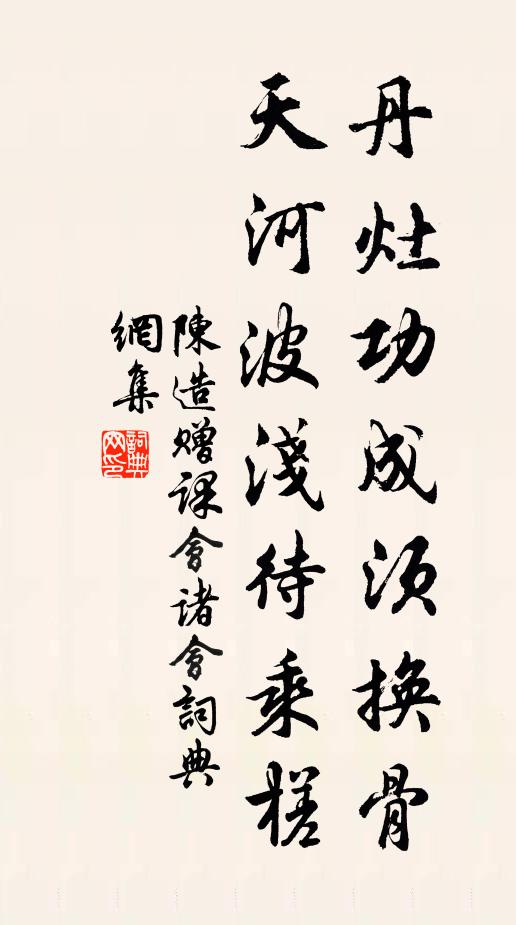 丹灶功成須換骨
天河波淺待乘槎
陳造贈課會諸會詞典
網集
詞典网印